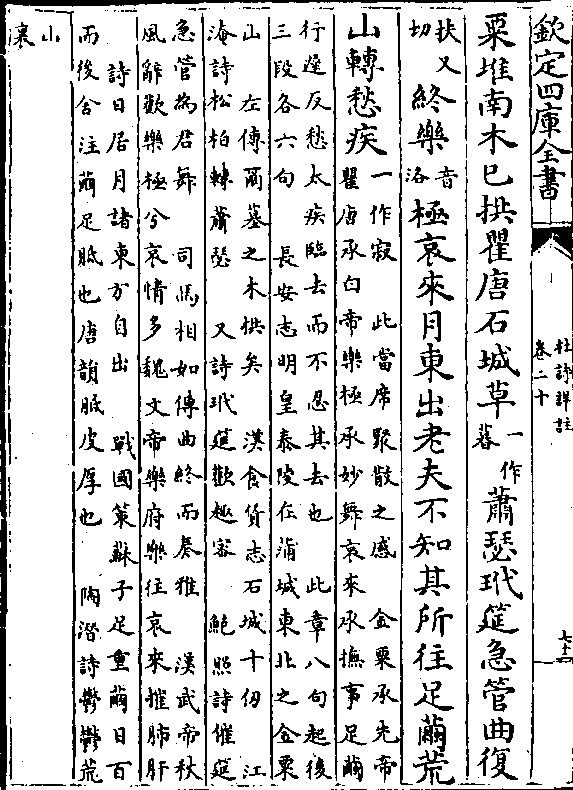 欽定四庫全書
杜詩詳註
卷二十
粟堆南木已拱瞿唐石城草一作暮蕭瑟玳筵急管曲復
扶又切終樂音洛極哀來月東出老夫不知其所往足繭荒
山轉愁疾一作寂 此當席聚散之感 金粟承先帝
瞿唐承白帝樂極承妙舞哀來承撫事足繭
行遲反愁太疾臨去而不忍其去也 此章八句起後
三段各六句 長安志明皇泰陵在蒲城東北之金粟
山 左傳爾墓之木拱矣 漢食貨志石城十仞 江
淹詩松柏轉蕭瑟 又詩玳筵歡趣密 鮑照詩催筵
急管為君舞 司馬相如傳曲終而奏雅 漢武帝秋
風辭歡樂極兮哀情多魏文帝樂府樂往哀來摧肺肝
詩日居月諸東方自出 戰國策蘇子足重繭日百
而後舍注繭足胝也唐韻胝皮厚也 陶潛詩鬱鬱荒
山
裏